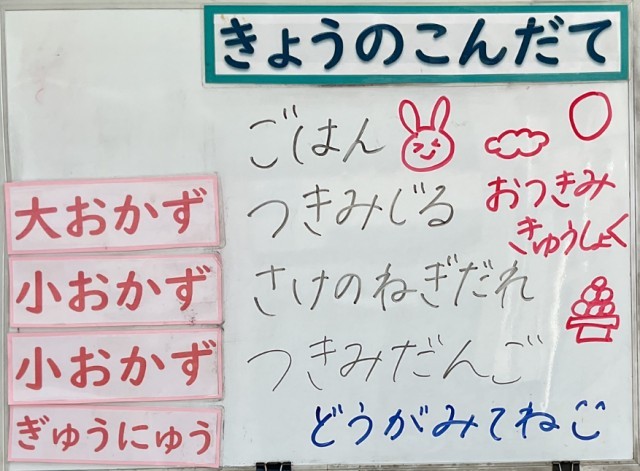 きょうのこんだて
ごはん
おつきみ
きゅうしょく
大おかず つきみじる
小おかず さけのねぎだれ
小おかず つきみだんご
ぎゅうにゅう
どうがみてね